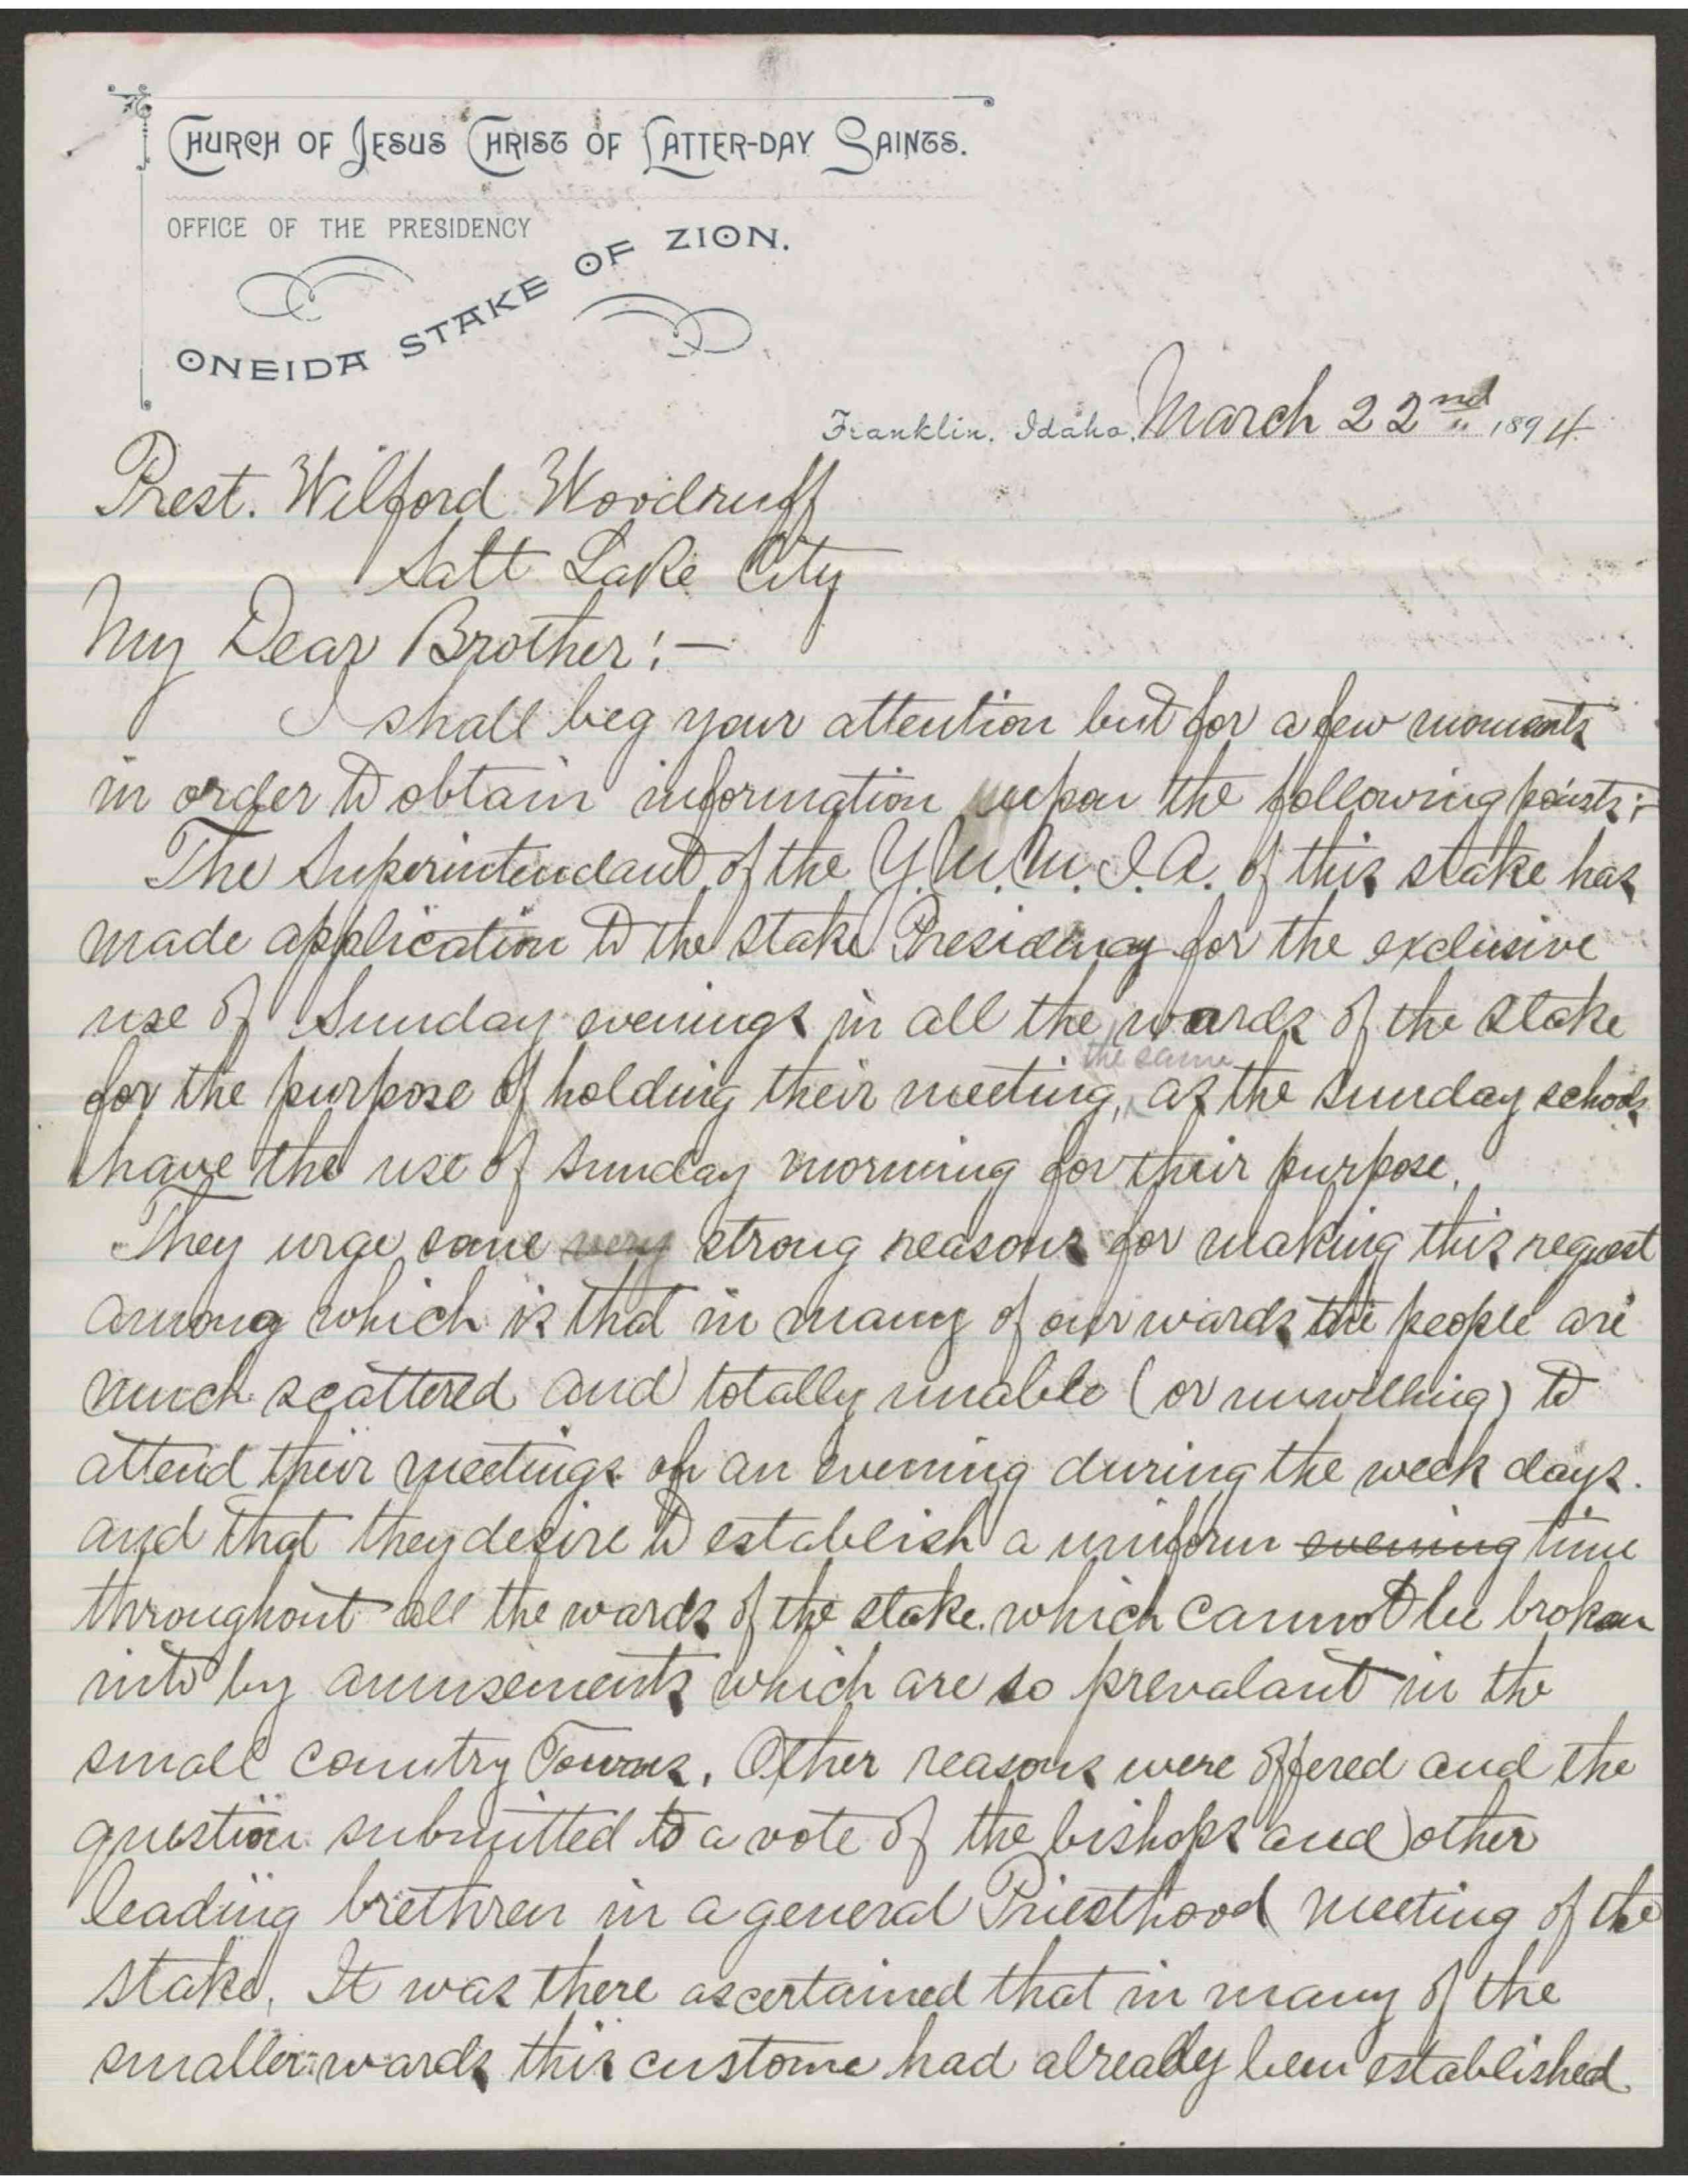 CHURCH OF JESUS CHRIST OF LATTER-DAY SAINTS.
OFFICE OF THE PRESIDENCY
ONEIDA STAKE OF ZION.
Franklin, Idaho, March 22nd 1894
Prest. Wilford Woodruff
Salt Lake City
My Dear Brother:—
I shall beg your attention but for a few moments
in order to obtain information upon the following points:-
The Superintendant of the Y.M.M.I.A. of this stake has
made application to the stake Presidency for the exclusive
use of Sunday evenings in all the wards of the stake
the same
for the purpose of holding their meeting, as the Sunday schools
have the use of Sunday morning for their purpose.
They urge some very strong reasons for making this request
among which is that in many of our wards the people are
much scattered and totally unable (or unwilling) to
attend their meetings of an evening during the week days.
and that they desire to establish a uniform evening time
throughout all the wards of the stake. which cannot be broken
into by amusements which are so prevalant in the
small country Towns. Other reasons were offered and the
question submitted to a vote of the bishops and other
leading brethren in a general Priesthood meeting of the
stake. It was there ascertained that in many of the
smaller wards this custome had already been established